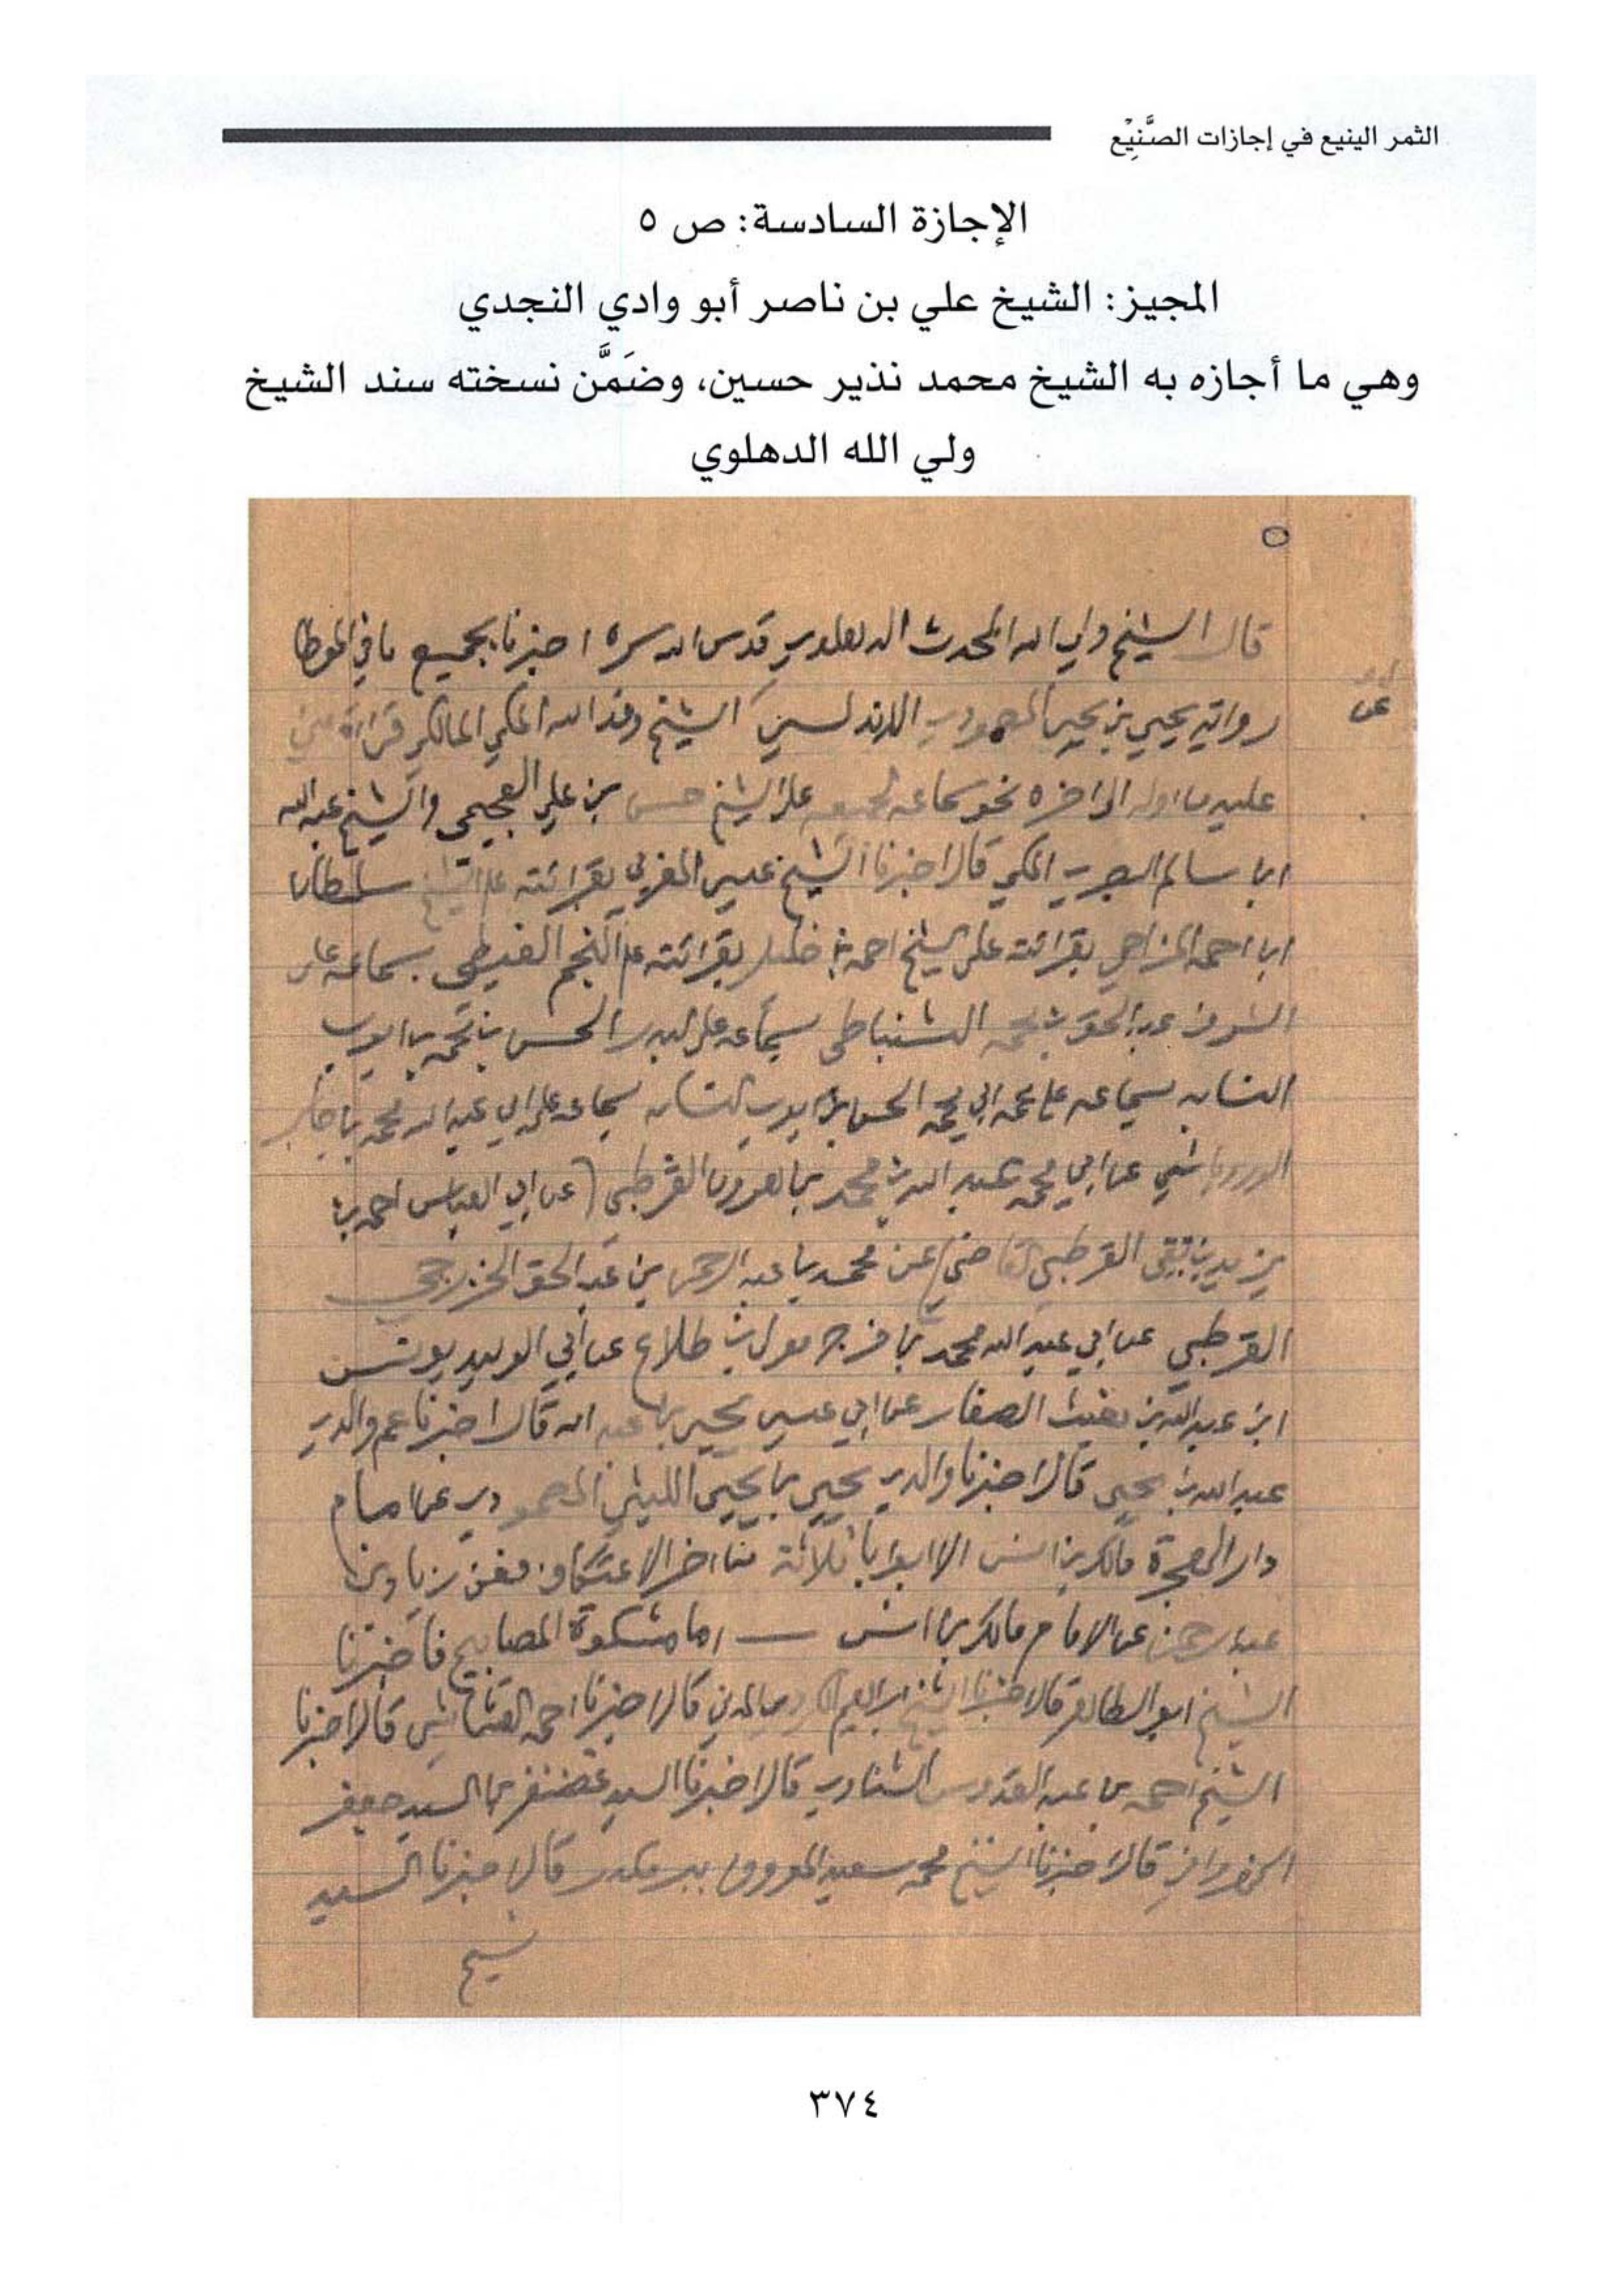 الثمر الينيع في إجازات الصَّنِيْع
الإجازة السادسة: ص ٥
المجيز: الشيخ علي بن ناصر أبو وادي النجدي
وهي ما أجازه به الشيخ محمد نذير حسين، وضَمَّن نسخته سند الشيخ
ولي الله الدهلوي
٥
قال الشيخ ولي الله المحدث الدهلوي قدس الله سره اخبرنا بجميع ما في الموطا
عن
رواية يحيى بن يحيى المصمودي الاندلسي الشيخ وفد الله المكي المالكي قراءة مني
عليه من اوله الى اخره نحو سماعه لجميعه على الشيخ حسن بن علي العجيمي والشيخ عبد الله
ابن سالم البصري المكي قالا اخبرنا الشيخ عيسى المغربي بقرائته على الشيخ سلطان
ابن احمد المزاحي بقرائته على الشيخ احمد بن خليل بقرائته على النجم الغيطي بسماعه على
الشرف عبد الحق بن محمد السنباطي بسماعه على البدر الحسن بن محمد بن ايوب
النسابه بسماعه على عمه ابي محمد الحسن بن ايوب النسابه بسماعه على ابي عبد الله محمد بن جابر
الوادياشي عن ابي محمد عبد الله بن محمد بن هرون القرطبي عن ابي العباس احمد بن
يزيد بن بقي القرطبي القاضي عن محمد بن عبد الرحمن بن عبد الحق الخزرجي
القرطبي عن ابي عبد الله محمد بن فرج مولى بن طلاع عن ابي الوليد يونس
ابن عبد الله بن مغيث الصفار عن ابي عيسى يحيى بن عبد الله قال اخبرنا عم والدي
عبيد الله بن يحيى قال اخبرنا والدي يحيى بن يحيى الليثي المصمودي عن امام
دار الهجرة مالك بن انس الا ابوابا ثلاثة من اخر الاعتكاف فعن زياد بن
عبد الرحمن عن الامام مالك بن انس — اما مشكوة المصابيح فاخبرنا
الشيخ ابو الطاهر قال اخبرنا الشيخ ابراهيم الكردي المدني قال اخبرنا احمد القشاشي قال اخبرنا
الشيخ احمد بن عبد القدوس الشناوي قال اخبرنا السيد غضنفر بن السيد جعفر
قال اخبرنا الشيخ محمد سعيد المعروف بمير كلان قال اخبرنا السيد
نسيم
٣٧٤